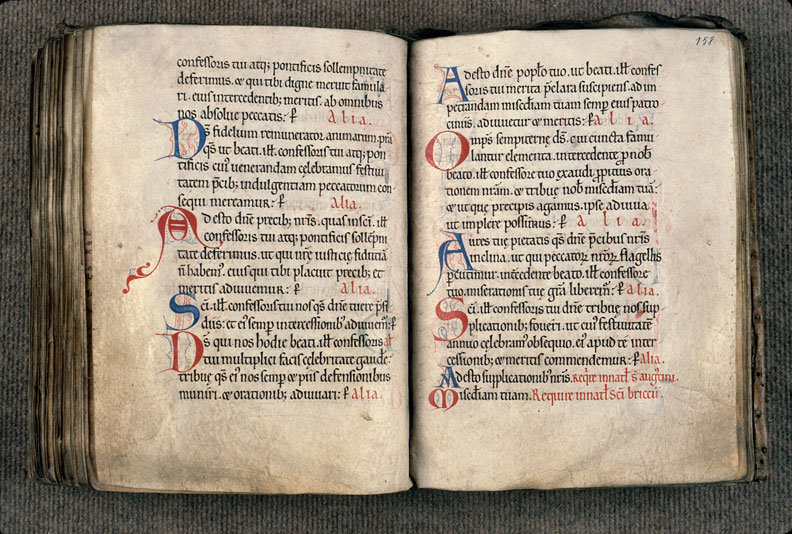 confessoris tui atq; pontificis sollempnitate
deferimus. & qui tibi digne meruit famula
ri. eius intercedentib; meritis. ab omnibus
nos absolve peccatis: ꝑ Alia.
Ds fidelium remunerator animarum. pſta
qs ut beati. ill. confessoris tui atq; pon
tificis cui' venerandam celebramus festivi
tatem p̄cib; indulgentiam peccatorum con
sequi mereamur: ꝑ alia.
Ad esto dn̄e precib; nr̄is. quas in sc̄i. ill.
confessoris tui atq; pontificis sollēpni
tate deferimus. ut qui nr̄e iusticie fiduciā
n̄ habem'. eius qui tibi placuit precib; et
meritis adiuvemur: ꝑ alia.
Sc̄i. ill. confessoris tui nos qs dn̄e tuere p̄si
diis: et ei' semp̄ intercessionib; adiuvem': ꝑ
Ds qui nos hodie beati. ill. confessoris al
tui multiplici facis celebritate gaude
tribue qs ei' nos semp̄ & piis defensionibus
muniri. & orationib; adiuvari: ꝑ alia.
158
Adesto dn̄e popl̄o tuo. ut beati. ill. confes
soris tui merita p̄clara suscipiens. ad im
petrandam misc̄diam tuam semp̄ eius patro
ciniis. adiuvetur & meritis: ꝑ alia.
Omp̄s sempiternе ds. cui cuncta famu
lantur elementa. intercedente p̄ nob
beato. ill. confessore tuo exaudi p̄picius ora
tionem nr̄am. & tribue nob misc̄diam tuā.
& ut que precipis agamus. ipse adiuva
ut implere possimus: ꝑ alia.
Aures tue pietatis qs dn̄e p̄cibus nr̄is
inclina. ut qui peccator nr̄or flagellis
p̄cutimur. int̄cedente beato. ill. confessore
tuo. miserationis tue gr̄a liberem̄. ꝑ alia.
Sc̄i. ill. confessoris tui dn̄e tribue nos sup
plicationib; foveri. ut cui' festivitatē
annuo celebram' obsequio. ei' apud te inter
cessionib; & meritis commendemur: ꝑ alia.
Adesto supplicationib' nr̄is. Req̄re in natl̄ s̄ augustini.
Misc̄diam tuam. Require in natl̄ sc̄i briccii.